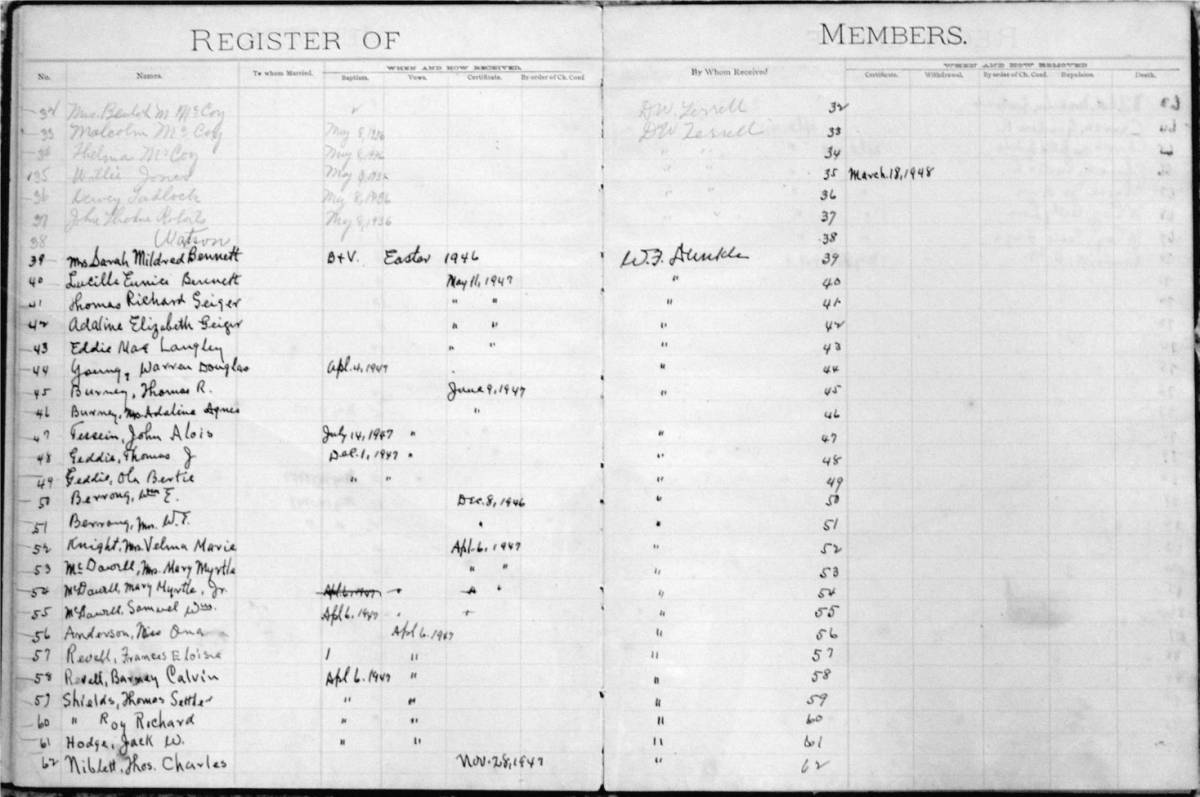 REGISTER OF MEMBERS.
WHEN AND HOW RECEIVED. WHEN AND HOW REMOVED
No. Names. To whom Married. Baptism. Vows. Certificate. By order of Ch. Conf. By Whom Received Certificate. Withdrawal. By order of Ch. Conf. Expulsion. Death.
32 Mrs. M. McCoy D.W. Terrell 32
33 Malcolm McCoy May 8, 1936 D.W. Terrell 33
34 Thelma McCoy May 8, 1936 " " 34
35 Willie Jones May 8, 1936 " " 35 March 18, 1948
36 Dewey Tadlock May 8, 1936 " " 36
37 John Thomas Roberts May 8, 1936 " 37
38 Watson 38
39 Mrs Sarah Mildred Bennett B+V. Easter 1946 W.F. Dunkle 39
40 Lucille Eunice Bennett May 11, 1947 " 40
41 Thomas Richard Geiger " " " 41
42 Adaline Elizabeth Geiger " " " 42
43 Eddie Mae Langley " " " 43
44 Young, Warren Douglas Apl. 4, 1947 " 44
45 Burney, Thomas R. June 9, 1947 " 45
46 Burney, Mrs Adaline Agnes " 46
47 Tessein, John Alois July 14, 1947 " " 47
48 Geddie, Thomas J Dec. 1, 1947 " " 48
49 Geddie, Ola Bertie " " " 49
50 Berrong, Wm E. Dec. 8, 1946 " 50
51 Berrong, Mrs. W.E. " " 51
52 Knight, Mrs Velma Marie Apl. 6, 1947 " 52
53 McDavell, Mrs. Mary Myrtle " " " 53
54 McDavell, Mary Myrtle, Jr. Apl. 6, 1947 " " " 54
55 McDavell, Samuel Wm. Apl 6, 1947 " " " 55
56 Anderson, Miss Oma Apl 6. 1947 " 56
57 Revell, Francis Eloise " " 57
58 Revell, Barney Calvin Apl. 6. 1947 " " 58
59 Shields, Thomas " " " 59
60 " Roy Richard " " " 60
61 Hodge, Jack W. " " " 61
62 Niblett, Thos. Charles Nov. 28, 1947 " 62